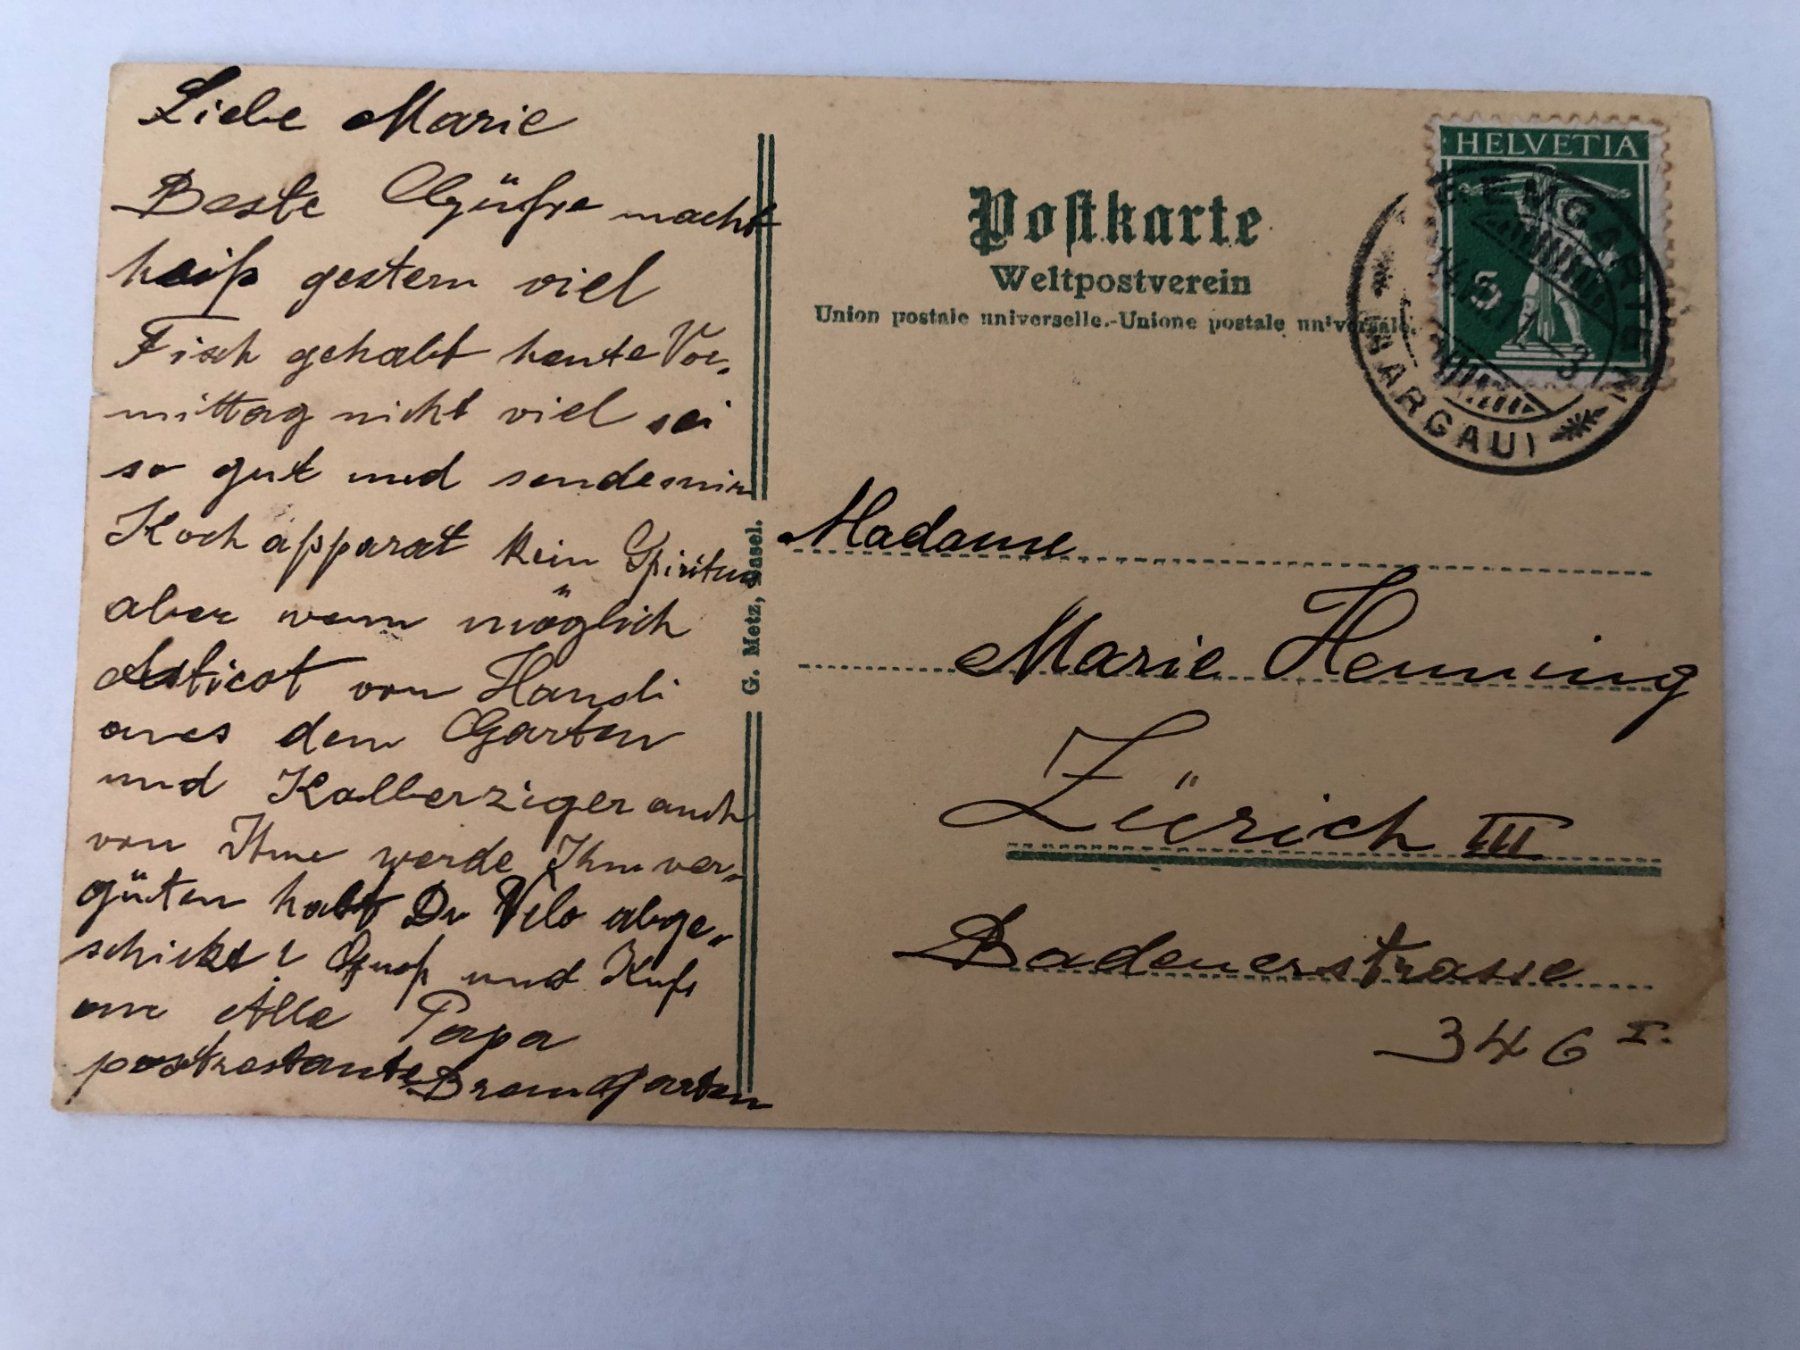 Liebe Marie
Beste Grüße macht
heiß gestern viel
Fisch gehabt heute Vor-
mittag nicht viel sei
so gut und sende mir
Kochapparat kein Spiritus
aber wenn möglich
Asticot von Hansli
aus dem Garten
und Kalberziger auch
von Ihme werde Ihm ver-
güten habt Dr Velo abge-
schickt? Gruß und Kuß
an Alle Papa
postrestante Bremgarten
G. Metz, Basel.
Postkarte
Weltpostverein
Union postale universelle.-Unione postale universale.
HELVETIA
5
BREMGARTEN
(AARGAU)
Madame
Marie Henning
Zürich III
Badenerstrasse
346 I.